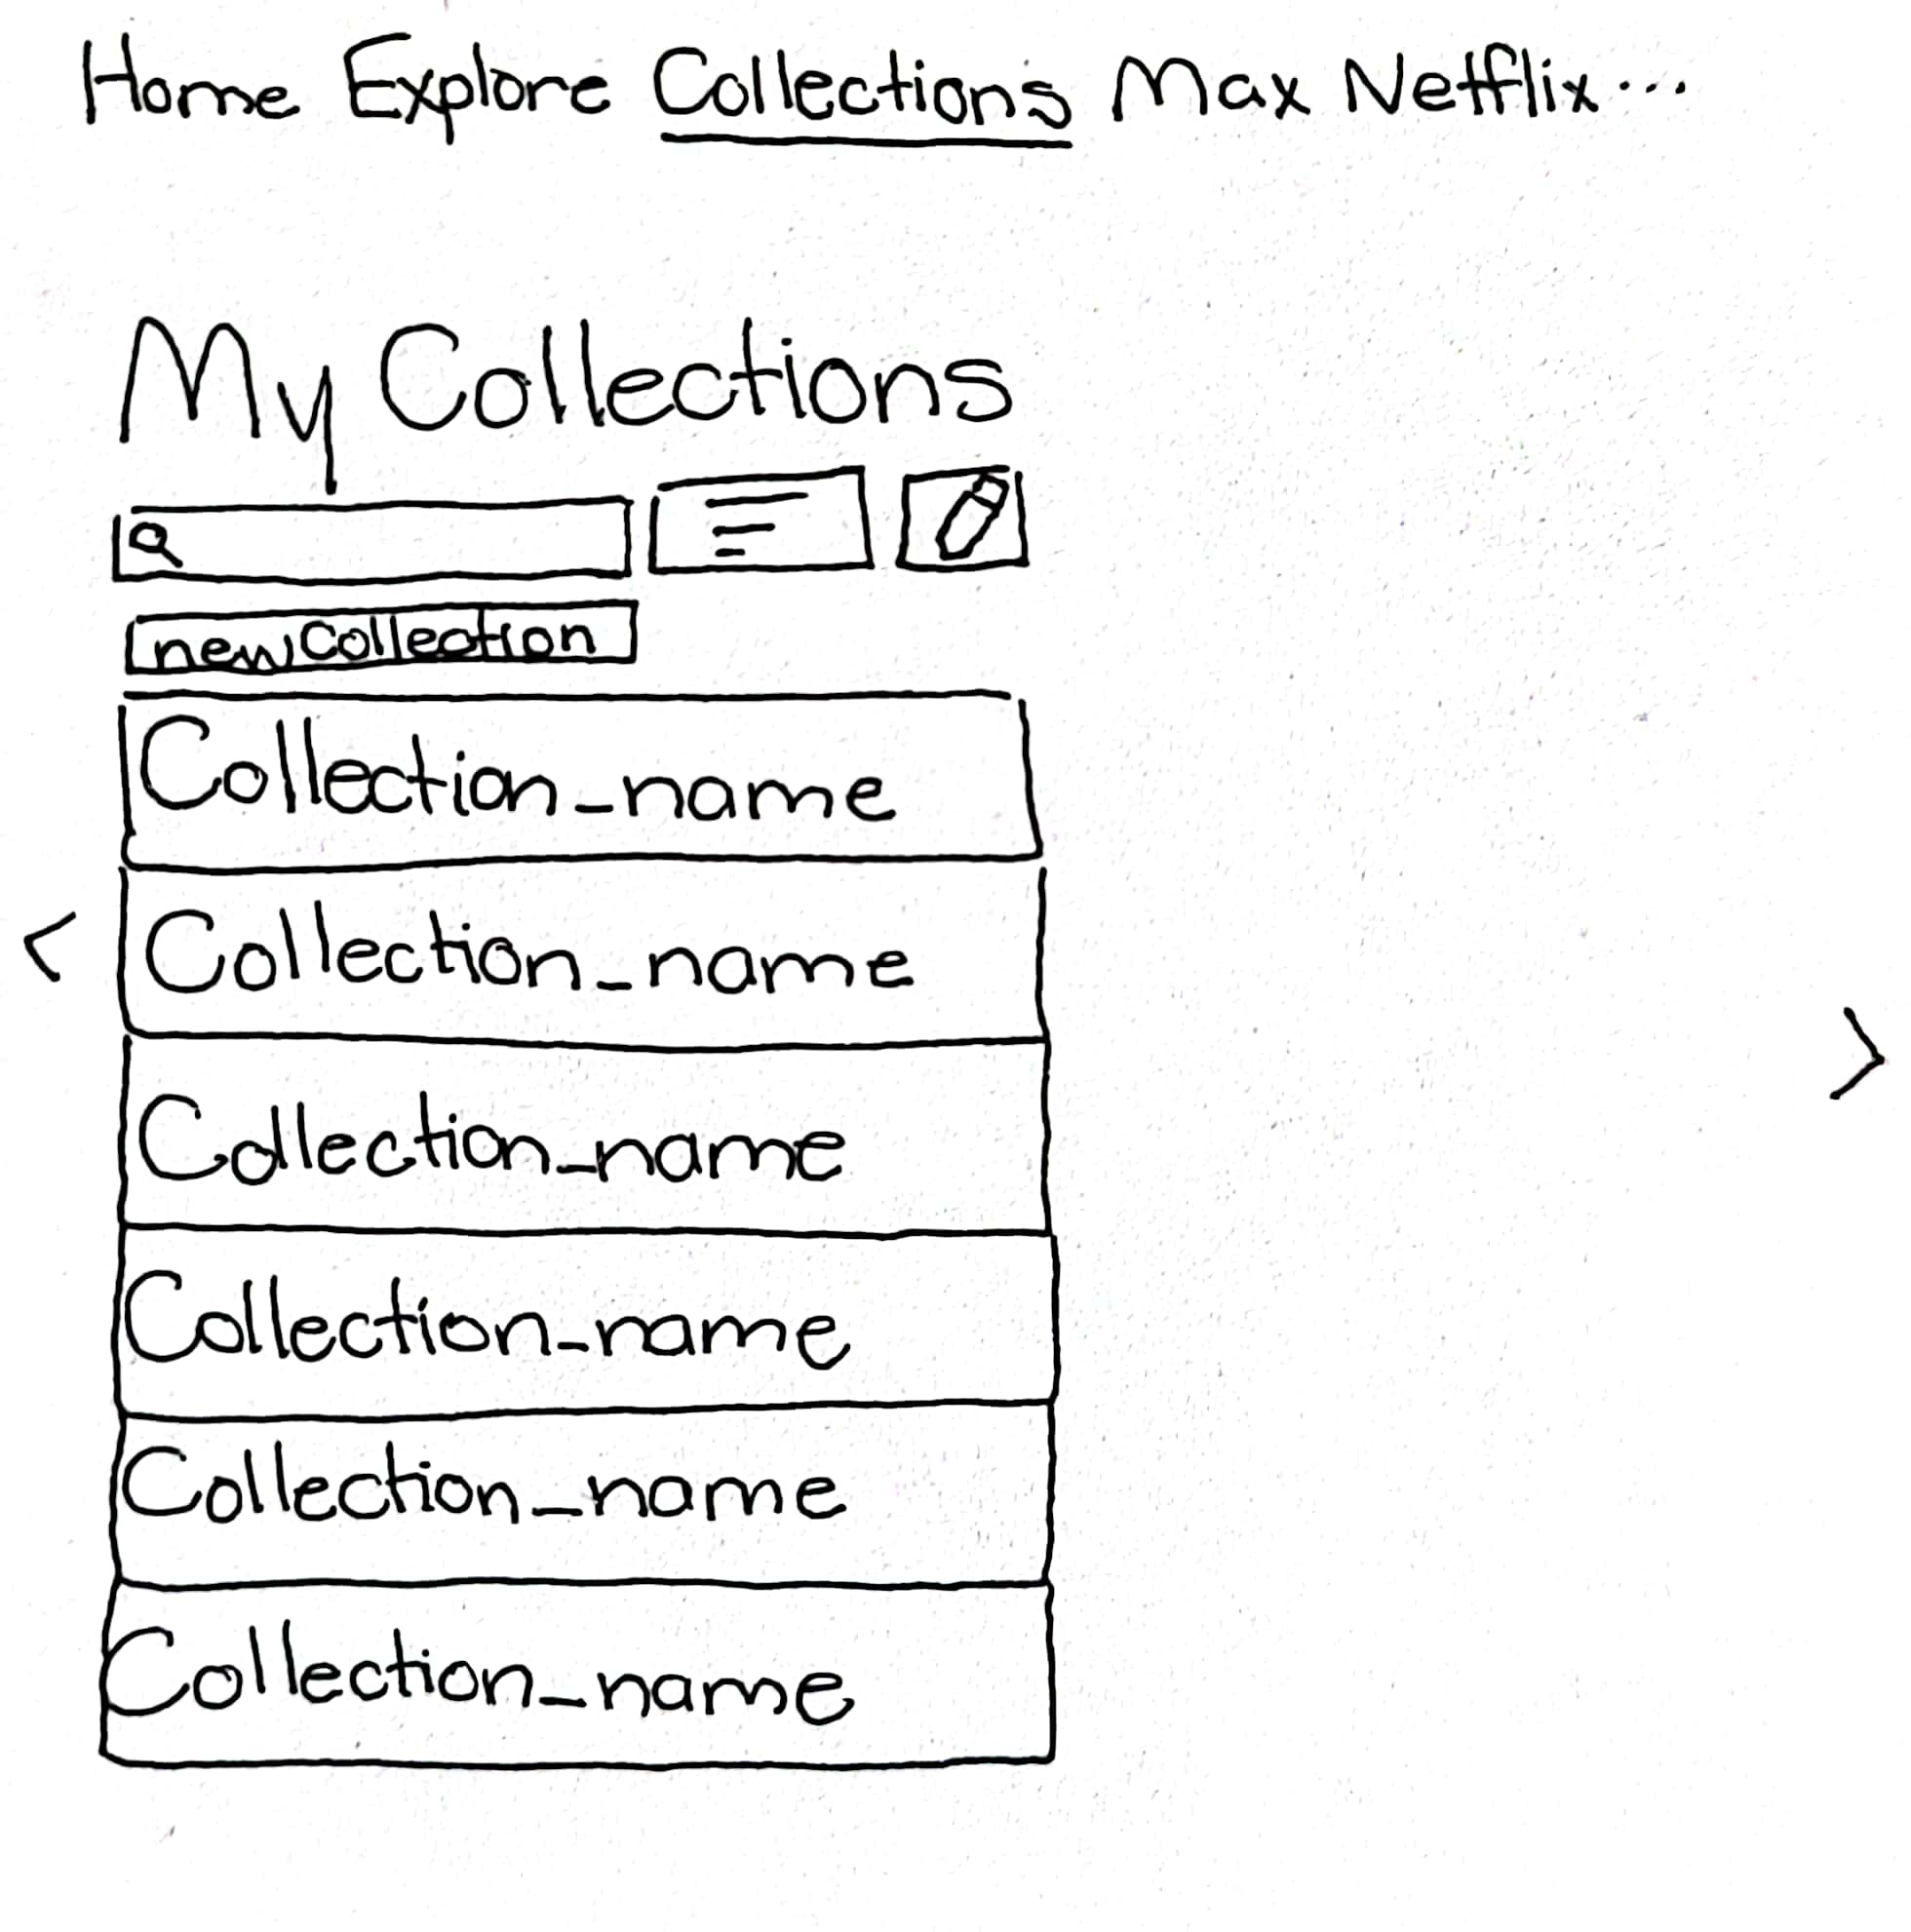 Home Explore Collections Max Netflix...
My Collections
new Collection
Collection_name
Collection_name
<
Collection_name
>
Collection_name
Collection_name
Collection_name